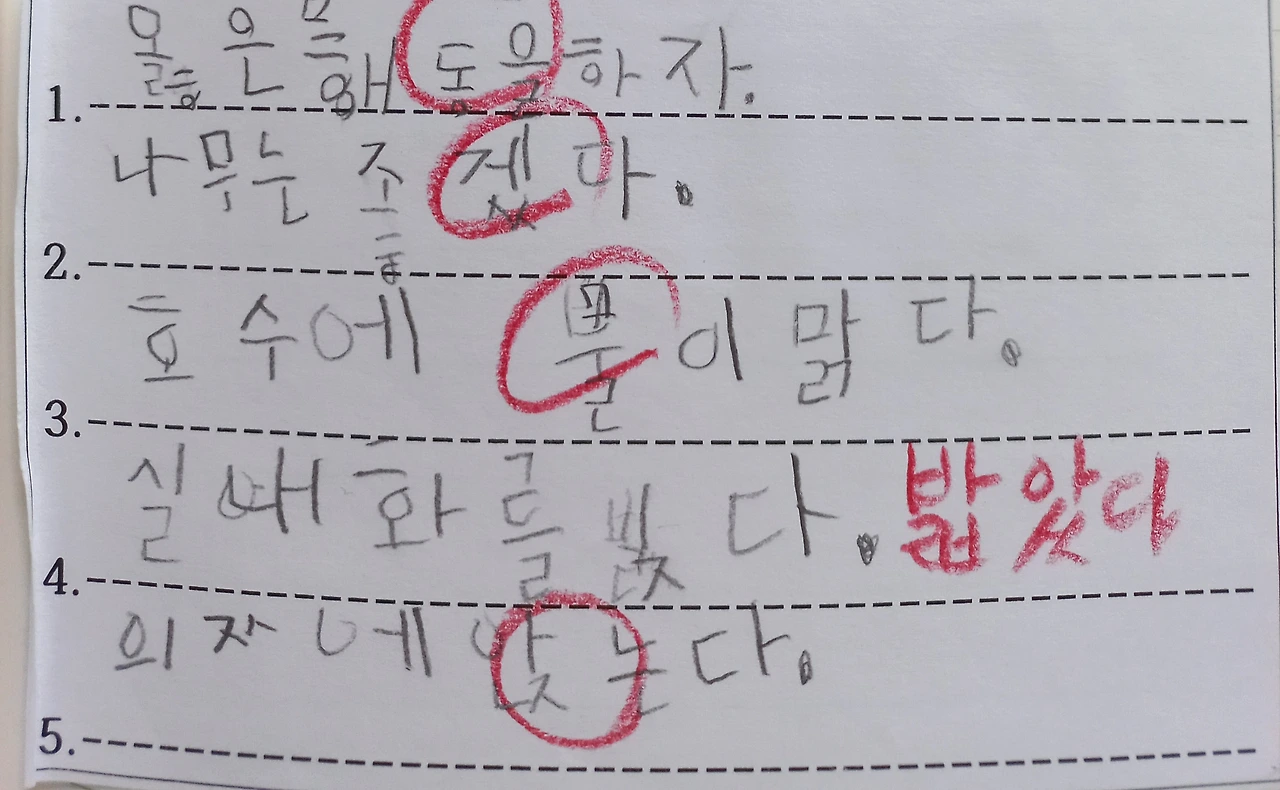 1. 옳은 하자.
2. 나무는 다.
3. 호수에 이 맑다.
4. 실내화를 다. 밟았다
5. 의자에 앉는다.